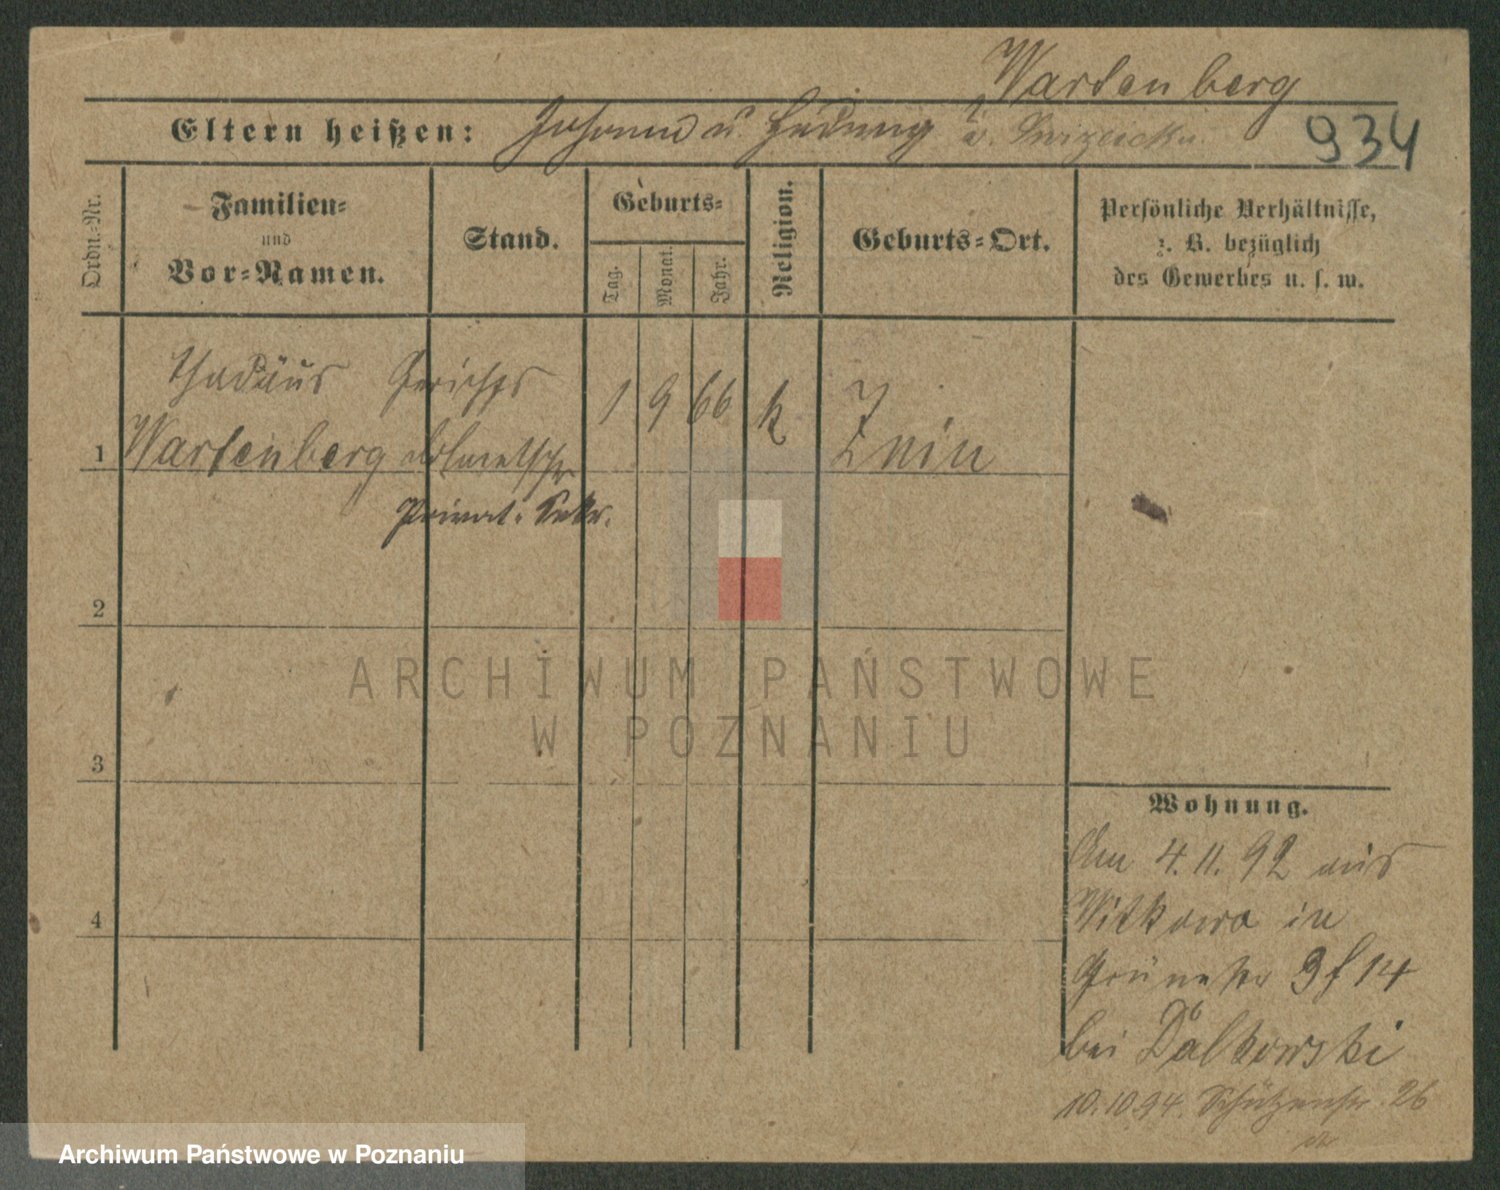 Wartenberg
Eltern heißen: Johann u. Hedwig
934
Ordn.-Nr.
Familien-
und
Vor-Namen.
Stand.
Geburts-
Tag.
Monat.
Jahr.
Religion.
Geburts-Ort.
Persönliche Verhältnisse,
z. B. bezüglich
des Gewerbes u. s. w.
Thadäus Gerichts 1 9 66 k Znin
1 Wartenberg dolmetscher
Privat-Sekr.
2
3
4
Wohnung.
Am 4.11.92 aus
Witkowo in
Grünestr 3 f 14
bei Dalkowski
10.10.94. Schützenstr. 26
ARCHIWUM PAŃSTWOWE
W POZNANIU
Archiwum Państwowe w Poznaniu